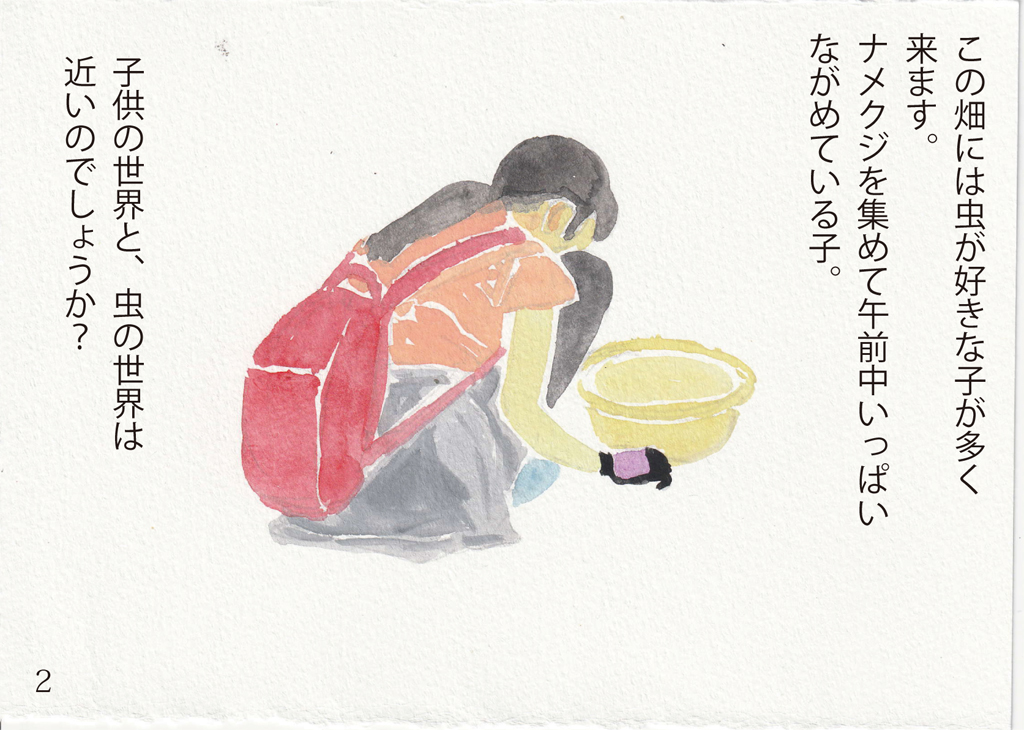 この畑には虫が好きな子が多く
来ます。
ナメクジを集めて午前中いっぱい
ながめている子。
子供の世界と、虫の世界は
近いのでしょうか？
2